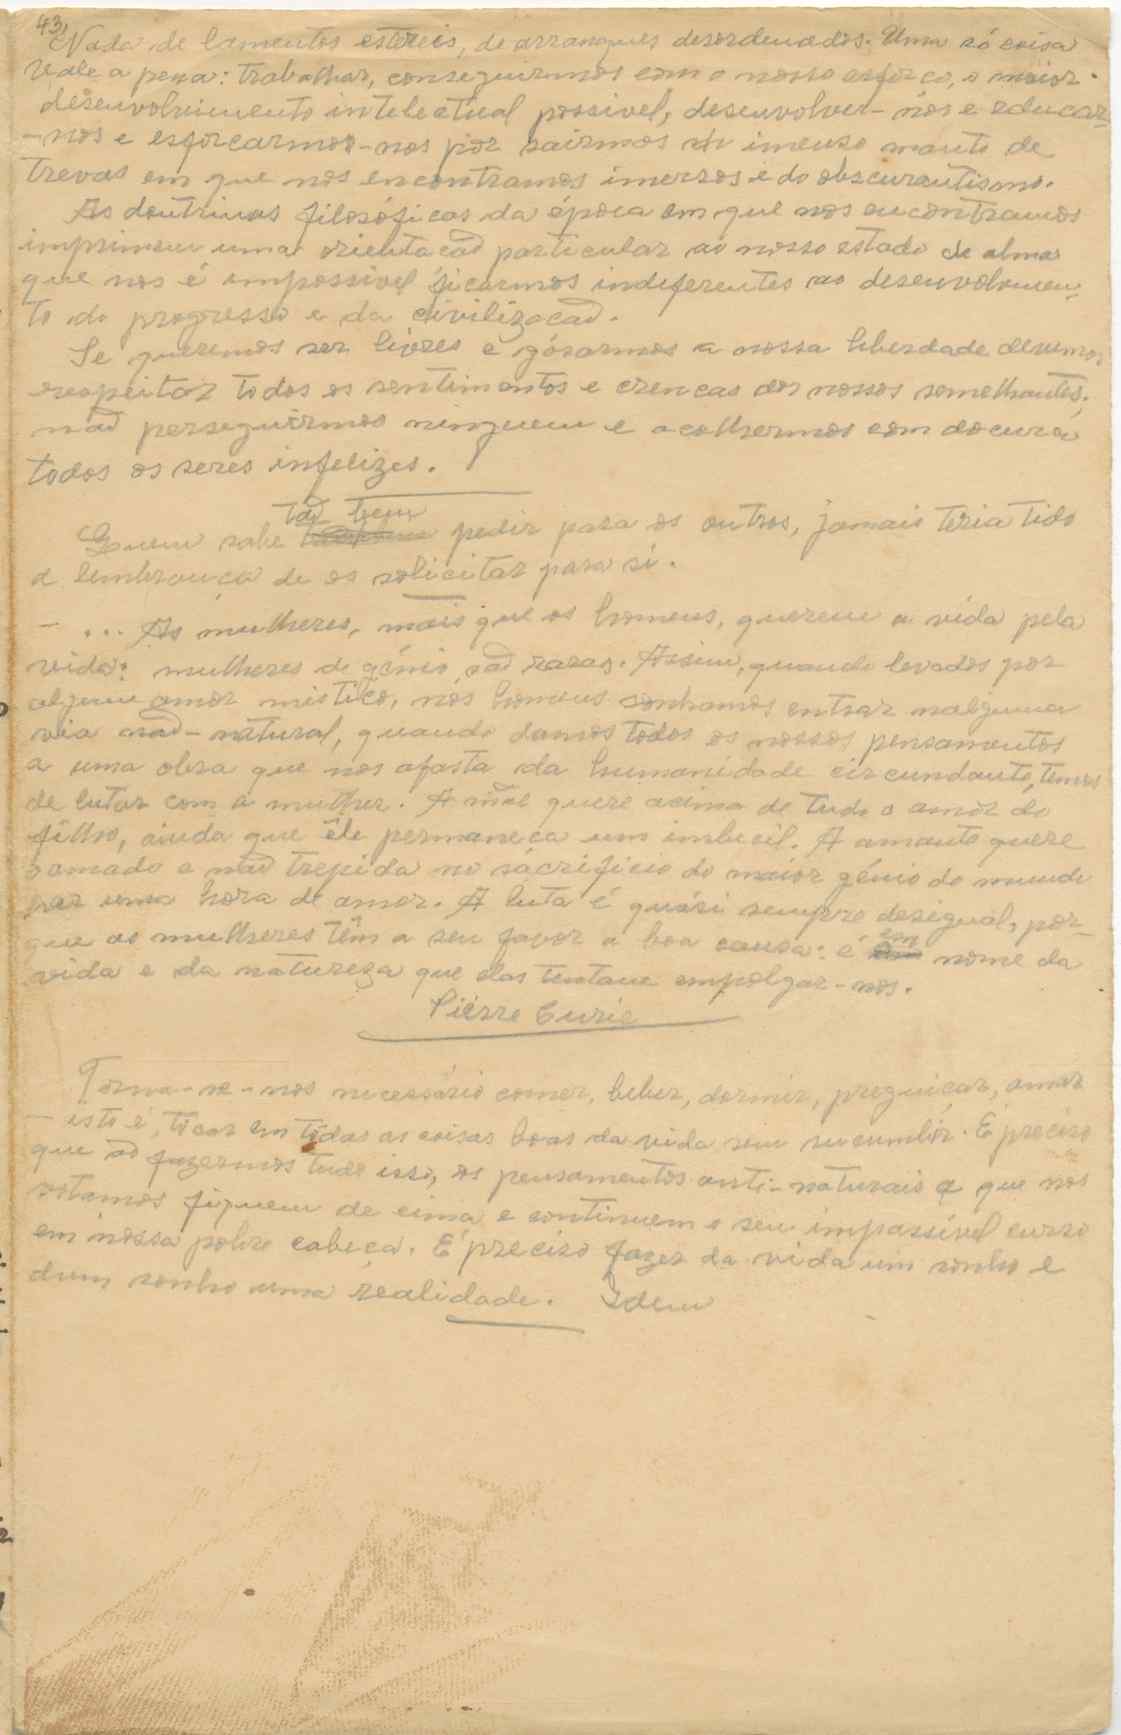 43)
Nada de lamentos estereis, de arranques desordenados. Uma só coisa
vale a pena: trabalhar, conseguirmos com o nosso esforço, o maior
desenvolvimento intelectual possivel, desenvolver-nos e educar-
-nos e esforcarmos-nos por sairmos do imenso manto de
trevas em que nos encontramos imersos e do obscurantismo.
As doutrinas filosóficas da época em que nos encontramos
imprimem uma orientacaõ particular ao nosso estado de alma
que nos é impossivel ficarmos indiferentes ao desenvolvimen-
to do progresso e da civilizacaõ.
Se queremos ser livres e gósarmos a nossa liberdade devemos
respeitar todos os sentimentos e crencas dos nossos semelhantes,
naõ perseguirmos ninguem e acolhermos com docura
todos os seres infelizes.
taõ bem
Quem sabe pedir para os outros, jamais teria tido
a lembrança de os solicitar para si.
- ... As mulheres, mais que os homens, querem a vida pela
vida: mulheres de génio saõ raras. Assim, quando levados por
algum amor mistico, nós homens sonhamos entrar nalguma
via naõ-natural, quando damos todos os nossos pensamentos
a uma obra que nos afasta da humanidade circundante, temos
de lutar com a mulher. A mãe quere acima de tudo o amôr do
filho, ainda que êle permaneca um imbecil. A amante quere
o amado e naõ trepida no sacrificio do maior génio do mundo
por uma hora de amor. A luta é quási sempre desigual, por-
que as mulheres têm a seu favor a boa causa: é em nome da
vida e da natureza que elas tentam empolgar-nos.
Piérre Curie
Torna-se-nos necessário comer, beber, dormir, preguiçar, amar
- isto é, tocar em tôdas as coisas boas da vida sem sucumbir. É préciso
que ao fazermos tudo isso, os pensamentos anti-naturais a que nos
votamos fiquem de cima e continuem o seu impassível curso
em nossa pobre cabeca. É preciso fazer da vida um sonho e
dum sonho uma realidade. Idem